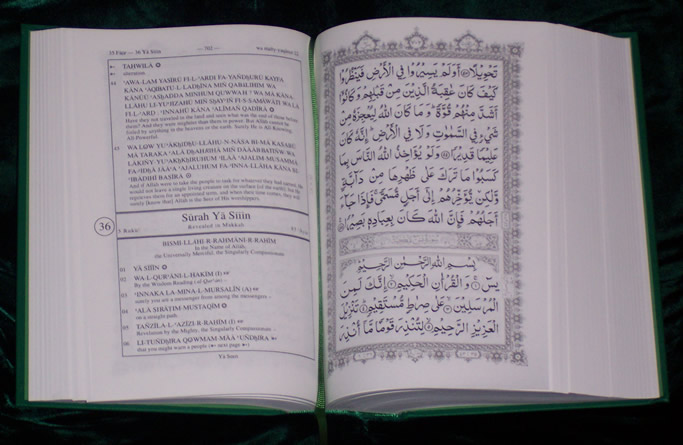 35 Fāṭir — 36 Yā Sīīn — 702 — wa māliy yaqnut 22
TAHWĪLĀ
alteration.
44 'AWA-LAM YASĪRŪ FI-L-'ARḌI FA-YANḌHURŪ KAYFA
KĀNA 'ĀQIBATU-L-LADHĪNA MIN QABLIHIM WA
KĀNŪU 'ASHADDA MINHUM QUWWAH WA MĀ KĀNA-
LLĀHU LI-YU'JIZAHŪ MIN SHAY'IN FI-S-SAMĀWĀTI WA LĀ
FI-L-'ARḌ 'INNAHŪ KĀNA 'ALĪMAN QADĪRĀ
Have they not traveled in the land and seen what was the end of those before
them? And they were mightier than them in power. But Allāh cannot be
foiled by anything in the heavens or the earth. Surely He is All-Knowing,
All-Powerful.
45 WA LOW YU'ĀKHIDHU-LLĀHU-N-NĀSA BI-MĀ KASABŪ
MĀ TARAKA 'ALĀ ḌHAHRIHĀ MIN DĀĀBBATINW-WA
LĀKINY-YU'AKHKHIRUHUM 'ILĀĀ 'AJALIM-MUSAMMĀ
FA-'IDHĀ JĀĀ'A 'AJALUHUM FA-'INNA-LLĀHA KĀNA BI-
'IBĀDIHĪ BAṢĪRĀ
And if Allāh were to take the people to task for whatever they had earned, He
would not leave a single living creature on the surface of the earth; but He
reprieves them for an appointed term, and when their time comes, they will
surely [know that] Allāh is the Seer of His worshippers.
36
Sūrah Yā Sīīn
Revealed in Makkah
5 Rukū'
BISMI-LLĀHI-R-RAHMĀNI-R-RAHĪM
In the Name of Allāh,
the Universally Merciful, the Singularly Compassionate
01 YĀ SĪĪN
02 WA-L-QUR'ĀNI-L-HAKĪM (I)
By the Wisdom Reading (al Qur'ān) –
03 'INNAKA LA-MINA-L-MURSALĪN (A)
surely you are a messenger from among the messengers –
04 'ALĀ ṢIRĀṬIM-MUSTAQĪM
on a straight path.
05 TANZĪLA-L-'AZĪZI-R-RAHĪM (I)
Revelation by the Mighty, the Singularly Compassionate –
06 LI-TUNDHIRA QOWMAM-MĀĀ 'UNDHIRA
that you might warn a people (next page)
Yā Sīīn
تَحْوِيلًا ۝ أَوَلَمْ يَسِيرُوا فِي الْأَرْضِ فَيَنْظُرُوا
كَيْفَ كَانَ عَاقِبَةُ الَّذِينَ مِنْ قَبْلِهِمْ وَكَانُوا
أَشَدَّ مِنْهُمْ قُوَّةً وَمَا كَانَ اللَّهُ لِيُعْجِزَهُ مِنْ
شَيْءٍ فِي السَّمٰوٰتِ وَلَا فِي الْأَرْضِ إِنَّهُ كَانَ
عَلِيمًا قَدِيرًا ۝ وَلَوْ يُؤَاخِذُ اللَّهُ النَّاسَ بِمَا
كَسَبُوا مَا تَرَكَ عَلَى ظَهْرِهَا مِنْ دَابَّةٍ
وَلٰكِنْ يُؤَخِّرُهُمْ إِلَى أَجَلٍ مُسَمًّى فَإِذَا جَاءَ
أَجَلُهُمْ فَإِنَّ اللَّهَ كَانَ بِعِبَادِهِ بَصِيرًا ۝
بِسْمِ اللَّهِ الرَّحْمٰنِ الرَّحِيمِ
يٰسٓ ۝ وَالْقُرْآنِ الْحَكِيمِ ۝ إِنَّكَ لَمِنَ
الْمُرْسَلِينَ ۝ عَلَى صِرَاطٍ مُسْتَقِيمٍ ۝ تَنْزِيلَ
الْعَزِيزِ الرَّحِيمِ ۝ لِتُنْذِرَ قَوْمًا مَا أُنْذِرَ